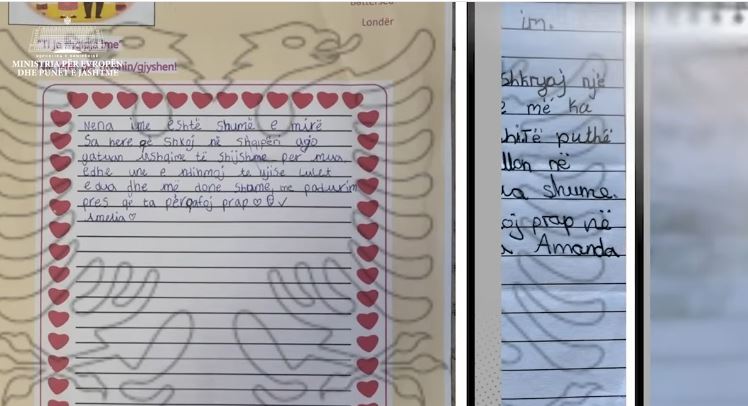 Battersea
Londër
MINISTRIA PËR EVROPËN
DHE PUNËT E JASHTME
/gjyshen!
Nena ime është shumë e mirë
Sa here që shkoj në Shqipëri ajo
gatuan ushqime të shijshme per mua
edhe une e ndihmoj te ujise lulet
e dua dhe më done shume, me padurim
pres që ta përqafoj prap
Amelia
im.
shkruaj një
më ka
puthë
në
shume.
prap në
Amanda